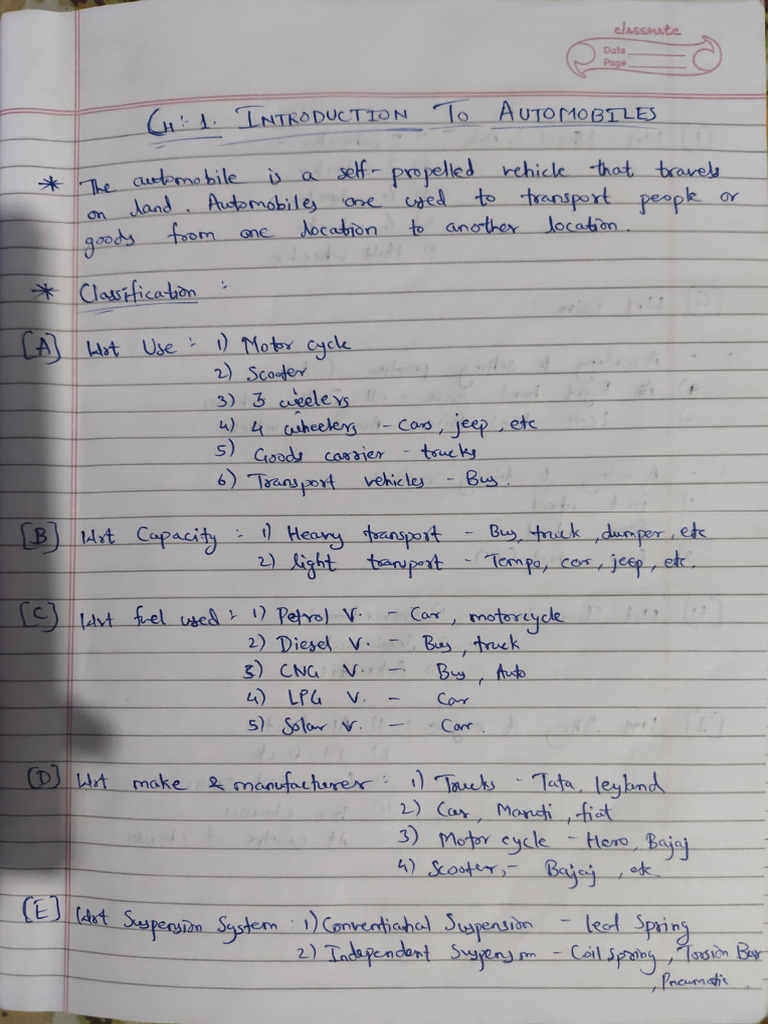 classmate
Date
Page
CH:- 1. INTRODUCTION TO AUTOMOBILES
* The automobile is a self-propelled vehicle that travels
on land. Automobiles are used to transport people or
goods from one location to another location.
* Classification :
[A] Wrt Use :- 1) Motor cycle
2) Scooter
3) 3 weelers
4) 4 wheelers - Cars, jeep, etc
5) Goods carrier - trucks
6) Transport vehicles - Bus.
[B] Wrt Capacity :- 1) Heavy transport - Bus, truck, dumper, etc
2) light transport - Tempo, car, jeep, etc.
[C] Wrt fuel used :- 1) Petrol V. - Car, motorcycle
2) Diesel V. - Bus, truck
3) CNG V. - Bus, Auto
4) LPG V. - Car
5) Solar V. - Car.
[D] Wrt make & manufacturer : 1) Trucks - Tata, leyland
2) Car, Maruti, fiat
3) Motor cycle - Hero, Bajaj
4) Scooter,- Bajaj, etc.
[E] Wrt Suspension System : 1) Conventional Suspension - leaf Spring
2) Independent Suspension - Coil spring, Torsion Bar
, Pneumatic